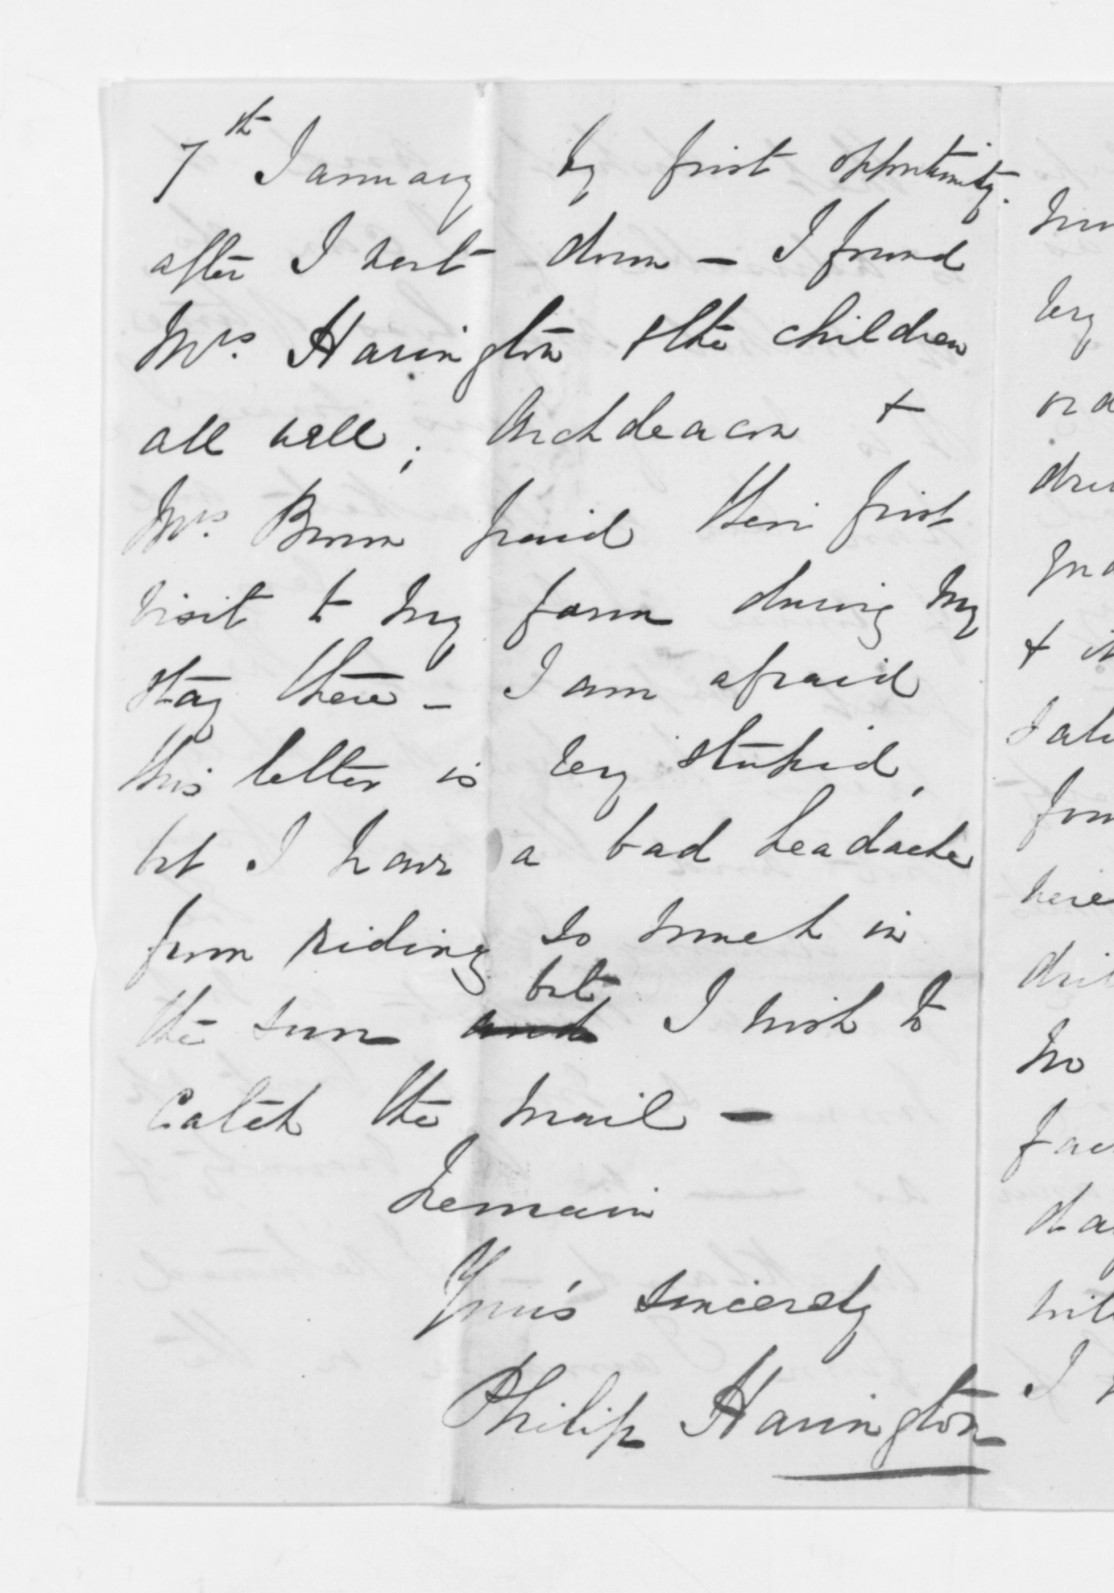 7th January by first opportunity.
after I went down - I found
Mrs. Harington & the children
all well; Archdeacon &
Mrs. Brown paid their first
visit to my farm during my
stay there - I am afraid
this letter is very stupid,
but I have a bad headache
from riding so much in
but
the sun and I wish to
catch the mail -
remain
Your's sincerely
Philip Harington
very
&
here
no
I